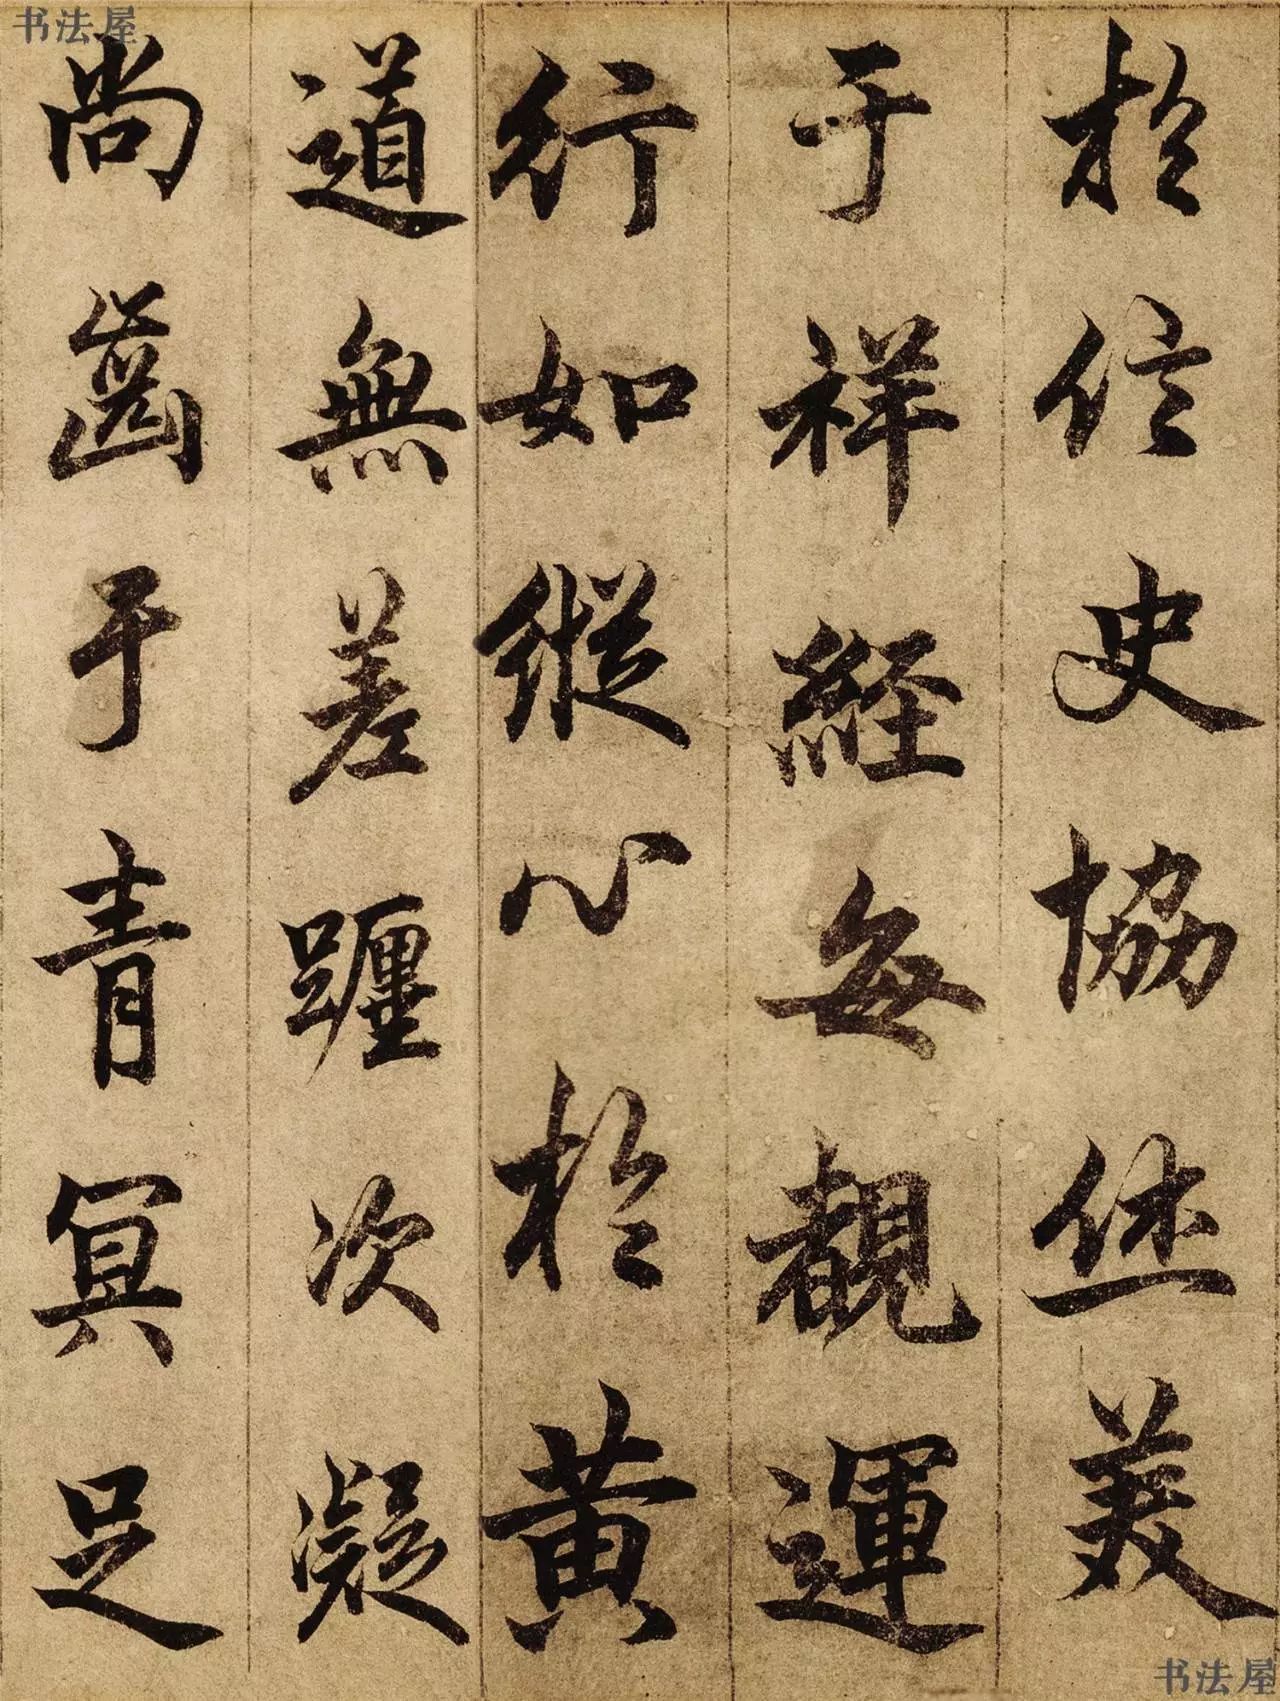 书法屋
於信史協休美
于祥經每覩運
行如縱心於黃
道無差躔次凝
尚齒于青冥足
书法屋